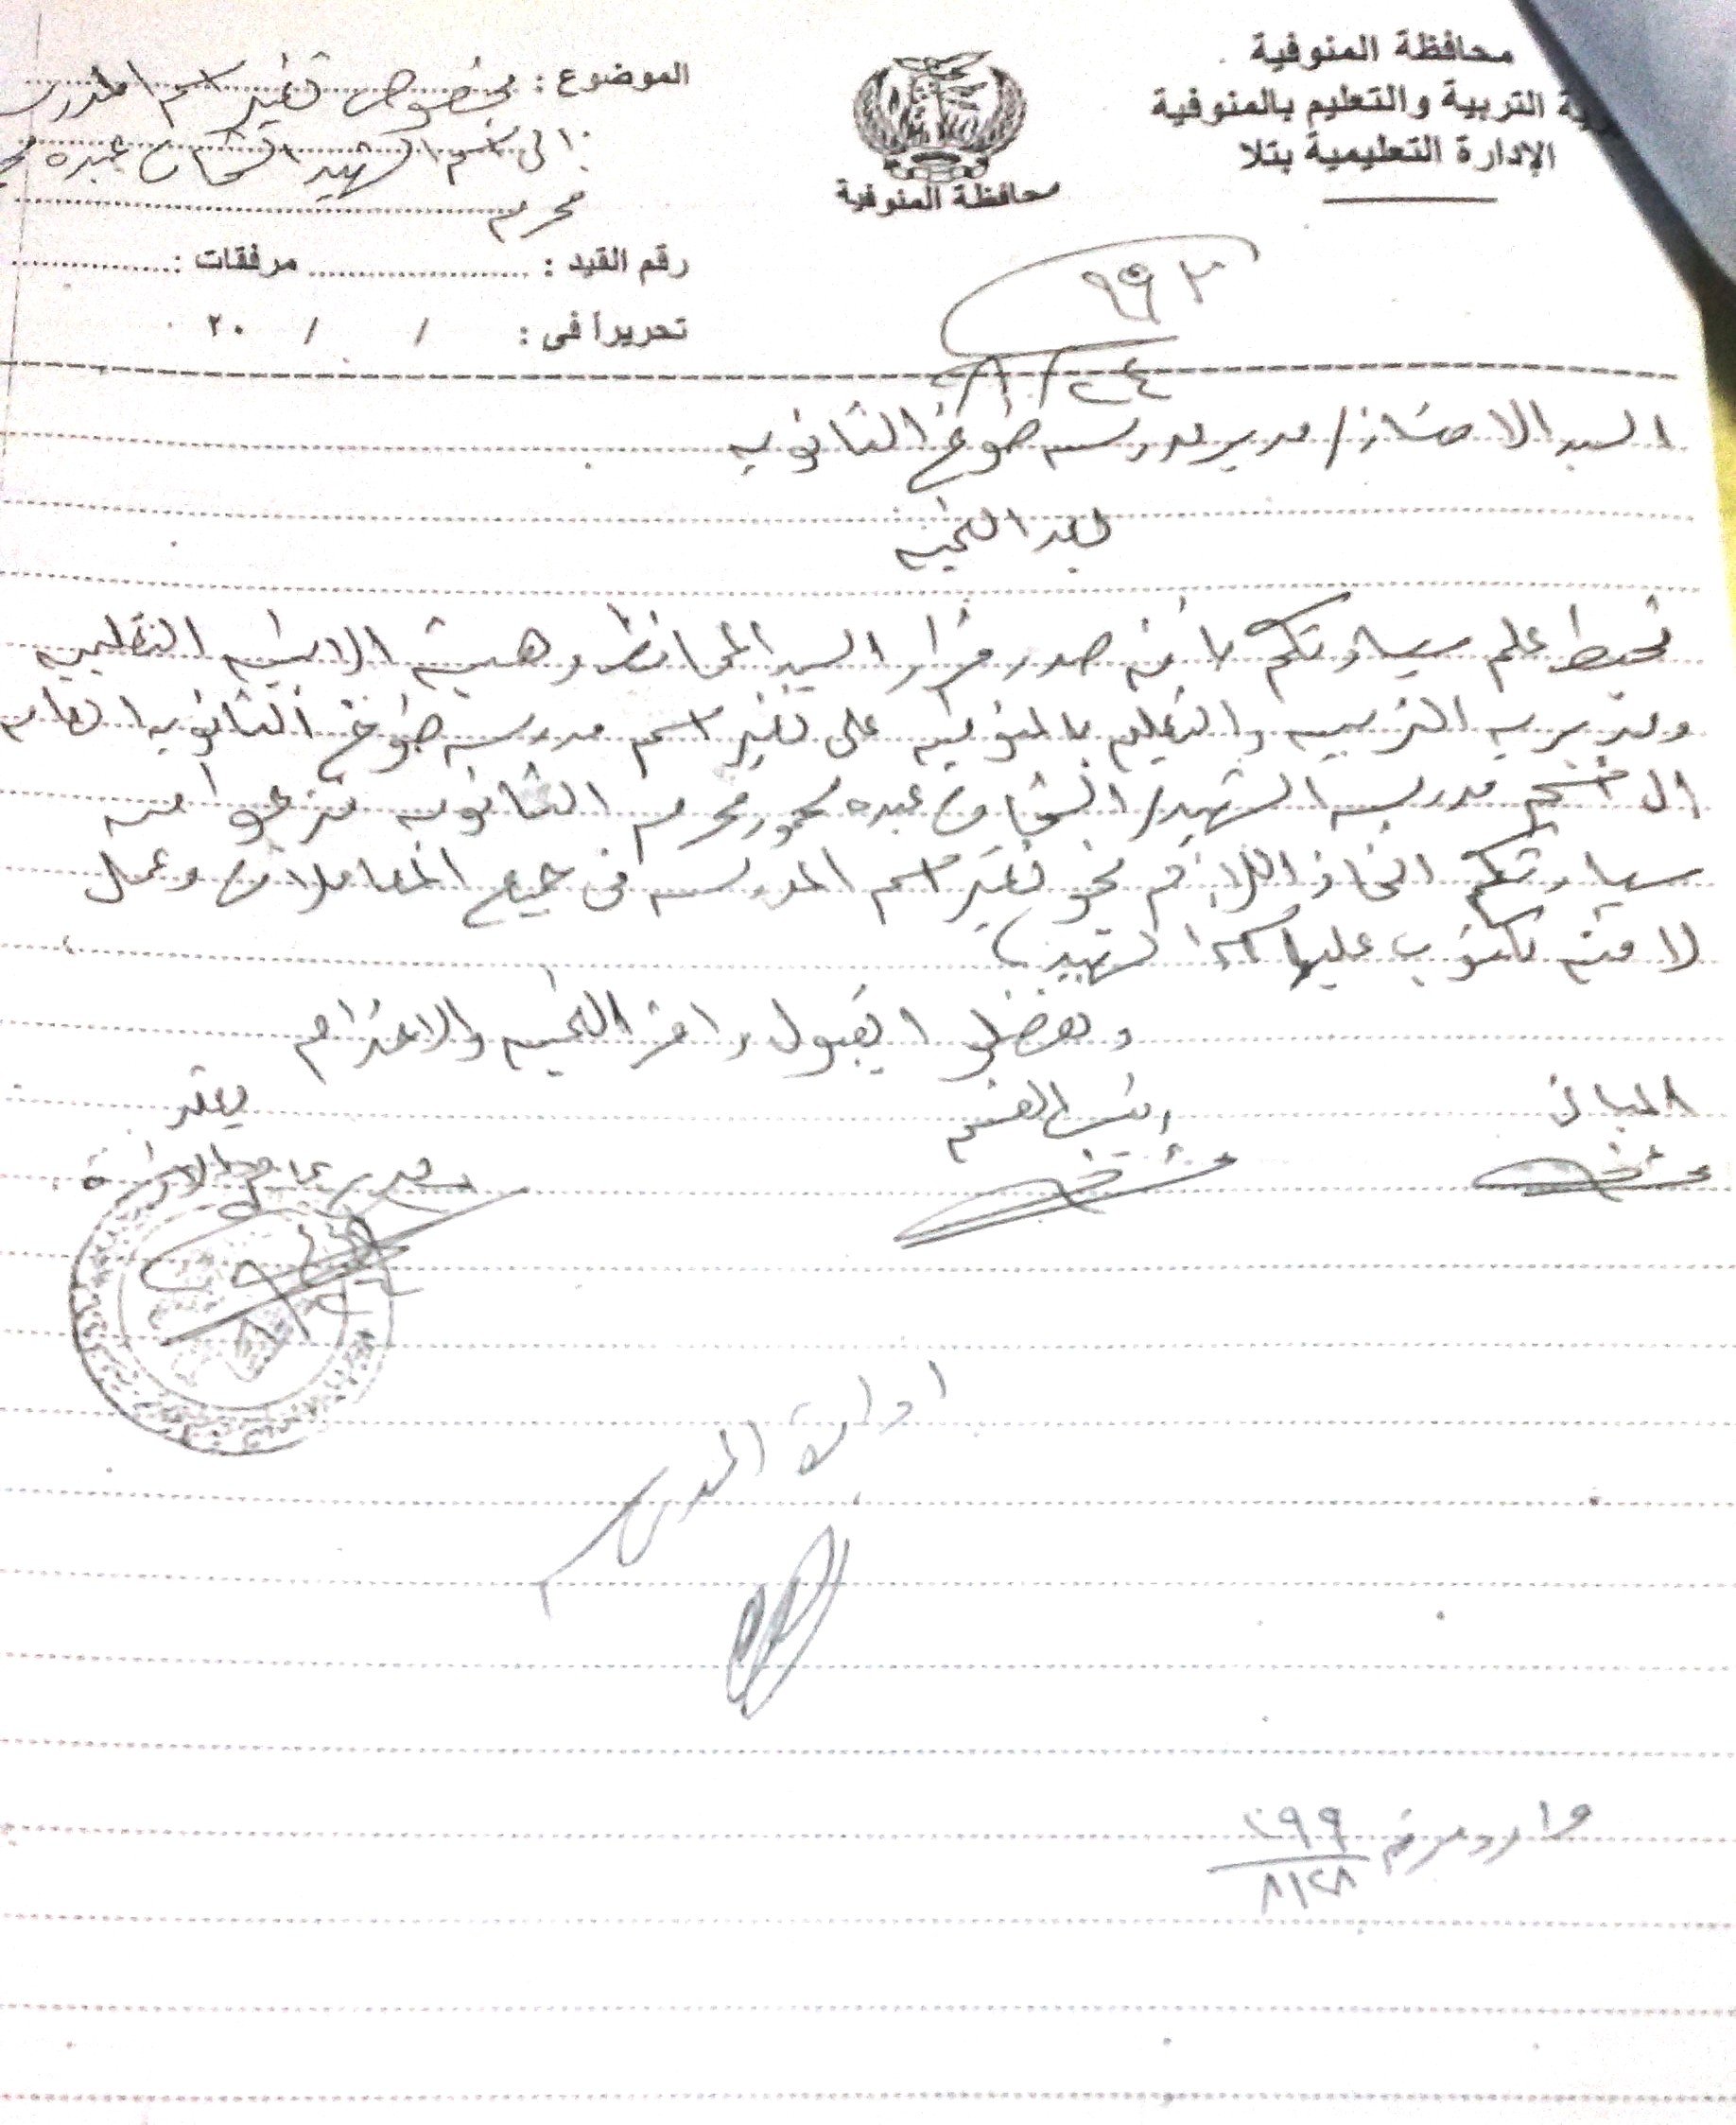 محافظة المنوفية
ية التربية والتعليم بالمنوفية
الإدارة التعليمية بتلا
محافظة المنوفية
الموضوع : بخصوص تغير اسم المدرسه
الى اسم الشهيد الشحات عبده
محرم
رقم القيد : مرفقات :
تحريراً فى : / / ٢٠
٩٩٣
٨/٢٤
السيد الاستاذ / مدير مدرسه طوخ الثانويه
بعد التحيه
نحيط علم سيادتكم بأنه صدر قرار السيد المحافظ وهيئه الابنيه التعليميه
ومديريه التربيه والتعليم بالمنوفيه على تغير اسم مدرسه طوخ الثانويه العامه
الى اسم مدرسه الشهيد / الشحات عبده محمود محرم الثانويه نرجوا من
سيادتكم اتخاذ اللازم نحو تغير اسم المدرسه فى جميع المعاملات وعمل
لافته مكتوب عليها اسم الشهيد
وتفضلوا بقبول وافر التحيه والاحترام
المبانى
رئيس القسم
يعتمد
مدير عام الادارة
ادارة المدرسه
وارد برقم ١٩٩
٨/٢٨